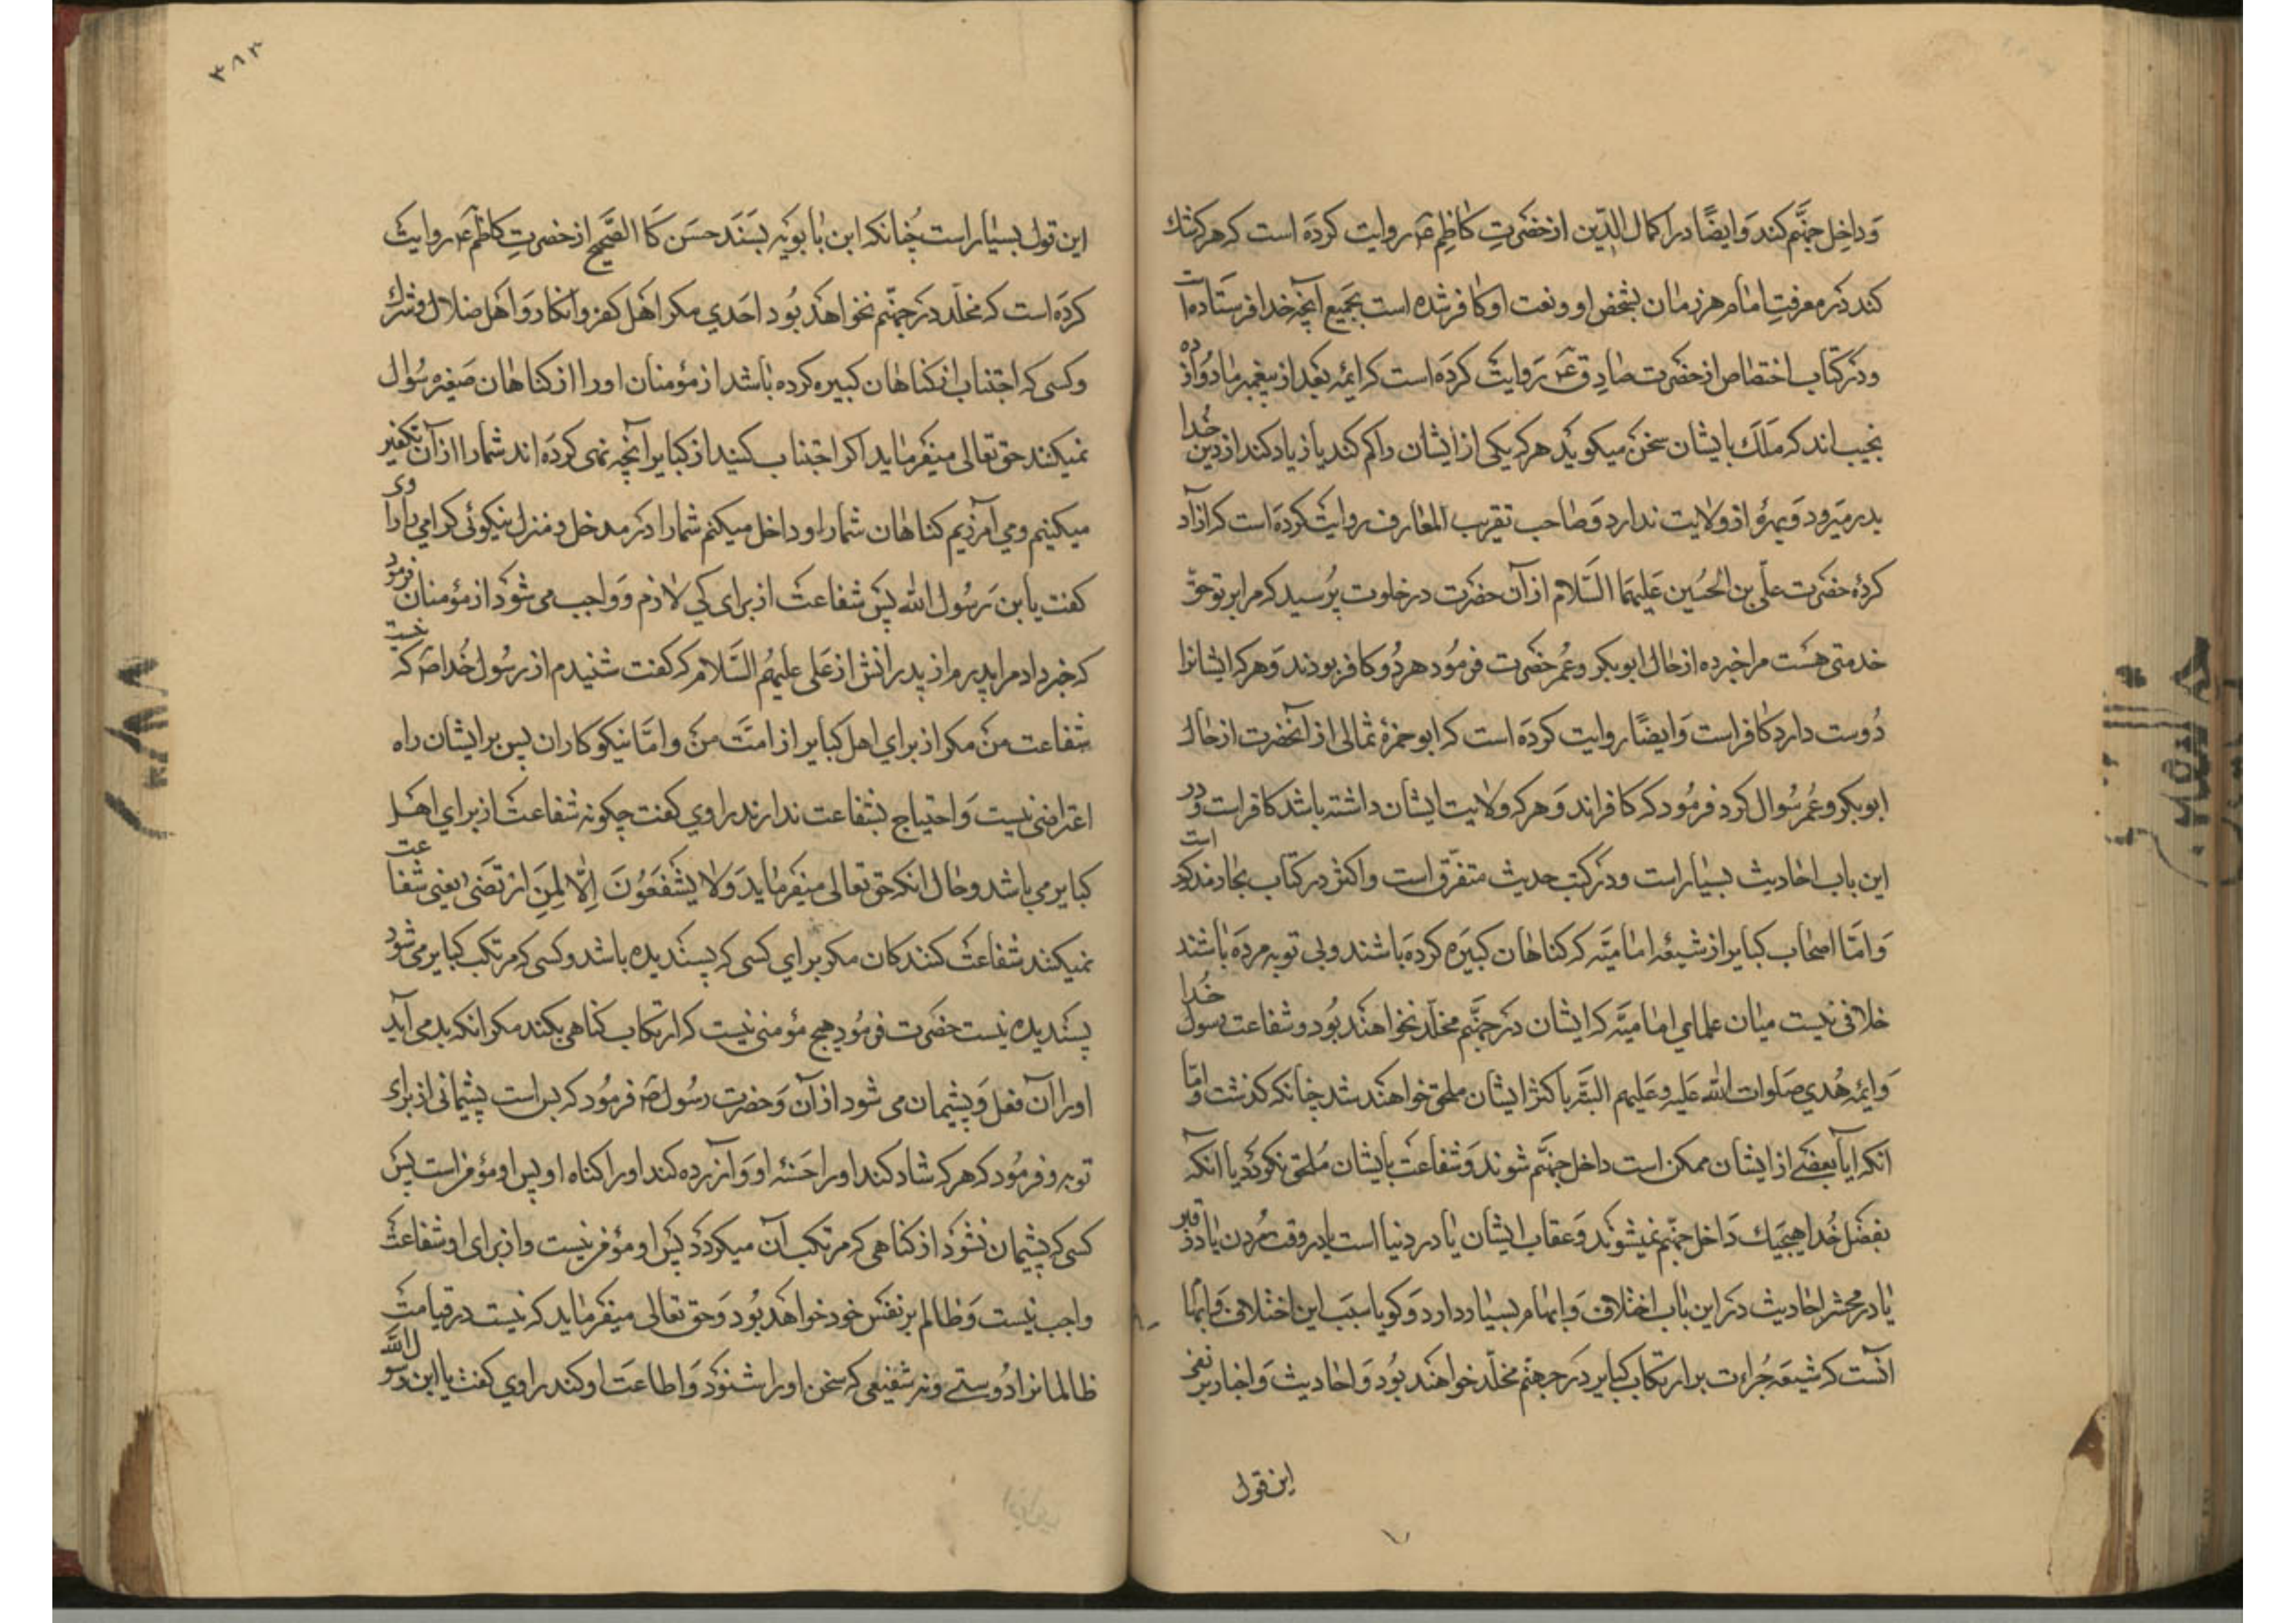 وَداخِل جهنَّم کند وَایضًا در اکمال الدّین از حضرَتِ کاظِم ع روایت کردَه است که هر که شك
کند در معرفتِ امام هر زمان بشخص او و نعت او کافر شده است بجَمیع آنچه خدا فرستاده است
ودر کتاب اختصاص از حضرَت صادِق ع رَوایت کردَه است که ایمّه بَعد از پیغمبر ما دوازده
نجیب‌اند که مَلَك با یشان سخن میکوید هر که یکی از ایشان را کم کند یا زیاد کند از دین خُدا
بدر میَرود وَبهرهٔ از ولایت ندارد وَصاحب تقریب المعارف روایت کردَه است که آزاد
کردهٔ حضرَت علّی بن الحُسین عَلیهمَا السّلام از آن حضرَت در خلوت پُرسید که مرا بر تو حقّ
خدمتی هست مرا خبر ده از حال ابوبکر وعُمر حضرَت فرمُود هردُو کافر بودند وَهرکه ایشانرا
دُوست دارد کافر است وَایضًا روایت کردَه است که ابوحمزهٔ ثمالی از آنحضرت از حال
ابوبکر وعُمر سُوال کرد فرمُود که کافراند وَهرکه ولایت ایشان داشته باشد کافر است وَدر
این باب احادیث بسیار است ودر کتب حدیث متفرّق است واکثر در کتاب بحار مذکور است
وَامّا اصحاب کبایر از شیعهٔ امامیّه که کناهان کبیَره کردَه باشند وبی توبه مردَه باشند
خلافی نیست میان علمای امامیّه که ایشان در جهنَّم مخلّد نخواهند بُود وشفاعت رسول خُدا
وَایمّه هُدی صلوات الله عَلیه وعَلیهم البتّه باکثر ایشان ملحق خواهند شد چنانکه کذشت وامّا
آنکه ایا بعضی از ایشان ممکن است داخل جهنَّم شوند وَشفاعت بایشان مُلحق نکردد یا آنکه
بفضل خُدا هیچیك دَاخل جهنّم نمیشوند وَعقاب ایشان یا در دنیا است یا در وقت مُردن یا در قبر
یا در محشر احادیث در این باب اختلاف وَابهام بسیار دارد وَکویا سبَب این اختلاف وابهام
آنست که شیعَه جُراءت بر ارتکاب کبایر در جهنّم مخلّد خواهند بُود وَاحادیث وَاخبار بر نفی
این قول
٣٨٣
این قول بسیار است چُنانکه ابن بابویه بسَنَد حسَن کَالصَّحیح از حضرتِ کاظم ع روایت
کردَه است که مخلّد در جهنّم نخواهَد بُود احَدی مکر اهَل کفر وانکار وَاهَل ضلال وشرك
وکسی که اجتناب از کناهان کبیره کرده باشد از مؤمنان اورا از کناهان صَغیره سُؤال
نمیکنند حق تعالی میفرماید اکر اجتناب کنید از کبایر آنچه نهی کردَه‌اند شمارا از آن تکفیر
میکنیم ومی آمرزیم کناهان شمارا وداخل میکنم شمارا در مدخل ومنزل نیکوئی کرامی راوی
کفت یابن رَسُول الله پس شفاعت از برای کی لازم وَواجب می شود از مؤمنان فرمُود
که خبر داد مرا پدرم از پدرانش از عَلی علیهُم السَّلام که کفت شنیدم از رسُول خُدا ص که نیست
شفاعت من مکر از برای اهل کبایر از امَّت من وامّا نیکوکاران پس بر ایشان راه
اعتراضی نیست وَاحتیاج بشفاعت ندارند راوی کفت چکونه شفاعت از برای اهَل
کبایر می باشد وحال انکه حق تعالی میفرماید وَلا یَشْفَعُونَ اِلّا لِمَنِ ارْتَضی یعنی شفاعت
نمیکنند شفاعت کنندکان مکر برای کسی که پسندیده باشد وکسی که مرتکب کبایر می شود
پسَندیده نیست حضرَت فرمُود هیچ مؤمنی نیست که ارتکاب کناهی بکند مکر انکه بد می آید
اورا آن فعل وَپشیمان می شود از آن وَحضرت رسُول ص فرمُود که بس است پشیمانی از برای
توبه وفرمُود که هرکه شاد کند اورا حَسَنهٔ او وَآزرده کند اورا کناه او پس او مؤمن است پس
کسی که پشیمان نشود از کناهی که مرتکب آن میکردد پس او مؤمن نیست واز برای او شفاعت
واجب نیست وَظالم بر نفس خود خواهد بُود وَحق تعالی میفرماید که نیست در قیامت
ظالمانرا دُوستی ونه شفیعی که سخن اورا شنود وَاطاعَت او کند راوی کفت یا ابن رسول الله